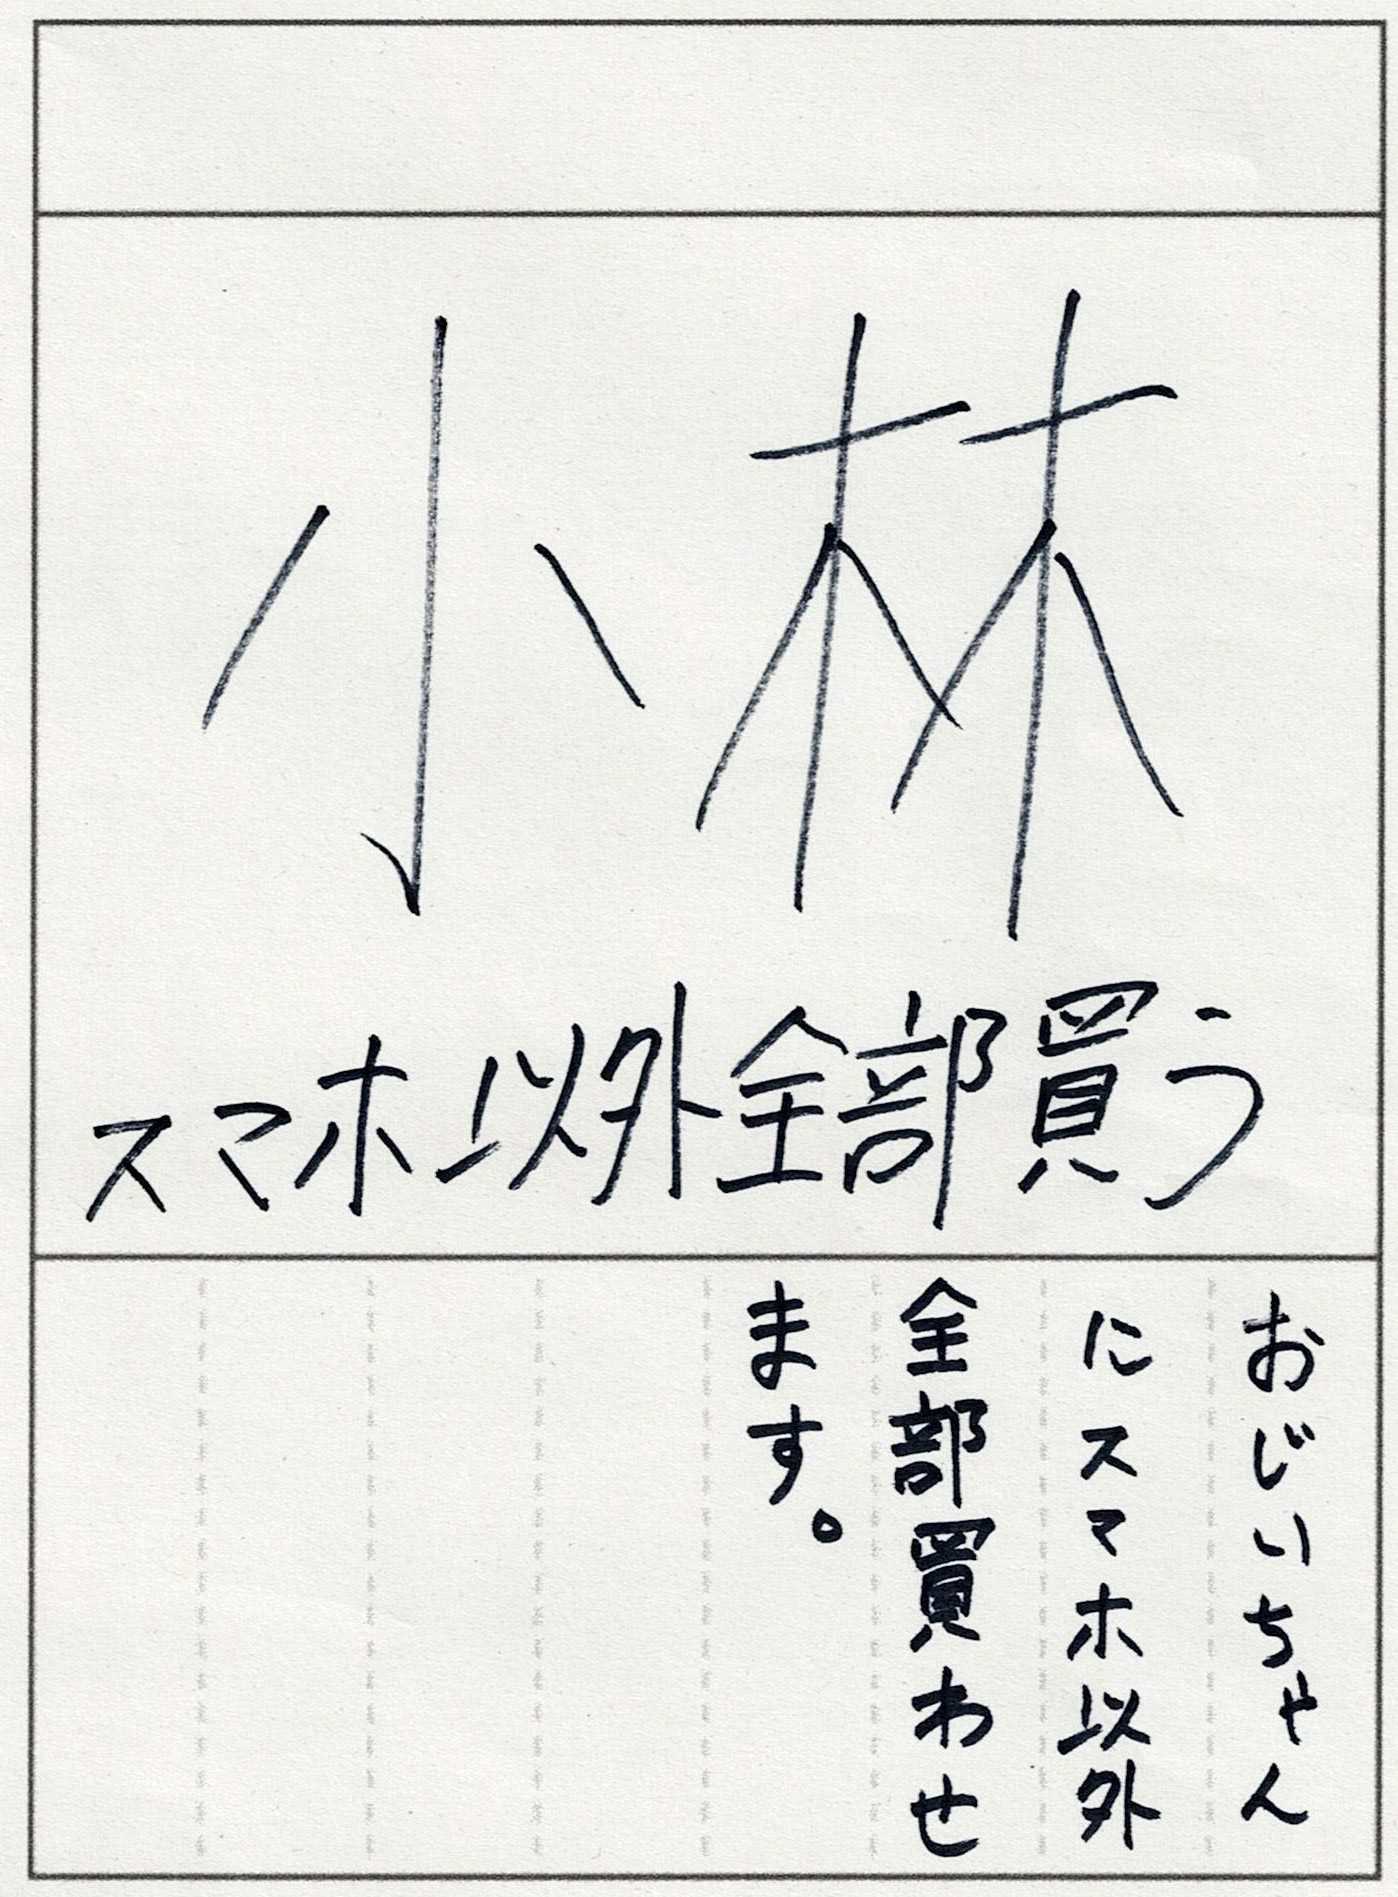 小林
スマホ以外全部買う
おじいちゃん
にスマホ以外
全部買わせ
ます。